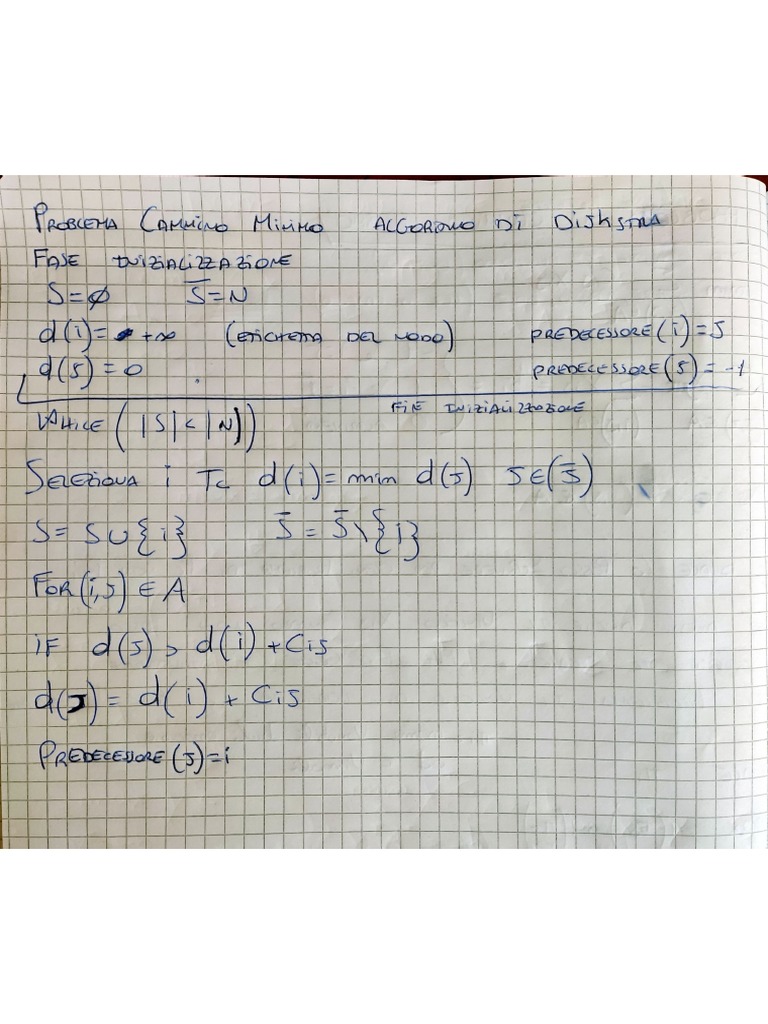 PROBLEMA CAMMINO MINIMO ALGORITMO DI DIJKSTRA
FASE INIZIALIZZAZIONE
S=∅ S̅=N
d(i)= +∞ (ETICHETTA DEL NODO) PREDECESSORE(i)=S
d(s)=0 PREDECESSORE(S)=-1
FINE INIZIALIZZAZIONE
WHILE (|S|<|N|))
SELEZIONA i Tc d(i)=min d(j) J∈(S̅)
S= S∪{i} S̅ = S̅\{i}
FOR(i,j)∈A
IF d(j)> d(i)+Cij
d(J)= d(i)+ Cij
PREDECESSORE(J)=i